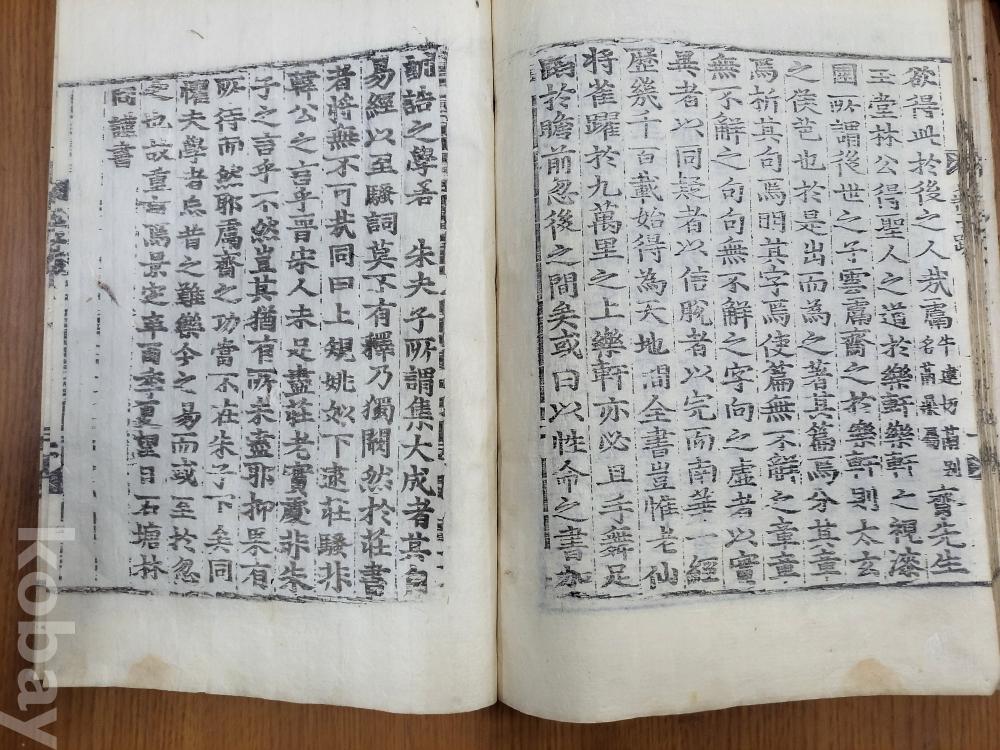 欲得此於後之人哉鬳牛建切鬲別名鬲鼎屬齋先生
玉堂林公得聖人之道於樂軒樂軒之視漆
園所謂後世之子雲鬳齋之於樂軒則太玄
之侯芭也於是出而為之著其篇焉分其章
焉析其句焉明其字焉使篇無不解之章章
無不解之句句無不解之字向之虛者以實
異者以同疑者以信脫者以完而南華一經
歷幾千百載始得為天地間全書豈惟老仙
將雀躍於九萬里之上樂軒亦必且手舞足
蹈於瞻前忽後之間矣或曰以性命之書加
詶誥之學吾 朱夫子所謂集大成者其自
易經以至騷詞莫不有釋乃獨闕然於莊書
者將無不可哉同曰上規姚姒下逮莊騷非
韓公之言乎晉宋人未足盡莊老實慶非朱
子之言乎不然豈其猶有所未盡耶抑果有
所待而然耶鬳齋之功當不在朱子下矣同
懼夫學者忘昔之難樂今之易而或至於忽
之也故重言焉景定辛酉季夏望日石塘林
同謹書
kobay